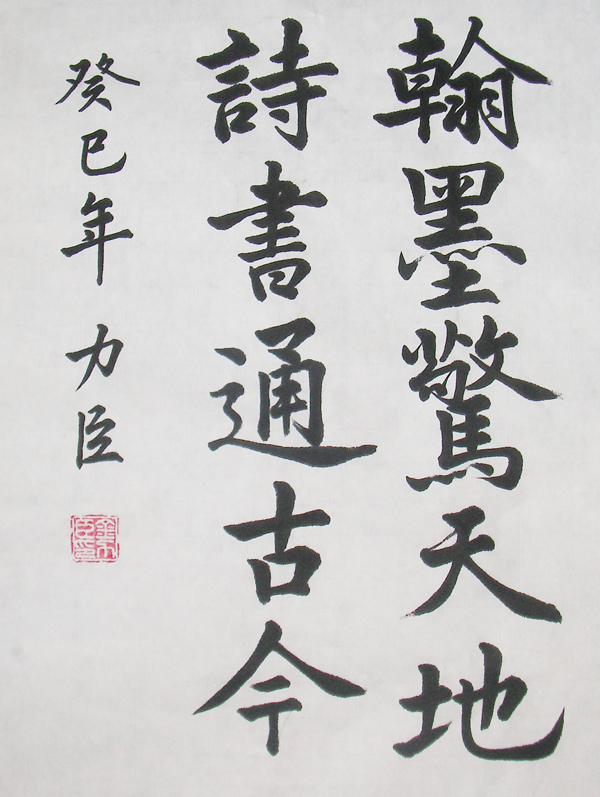 翰墨驚天地
詩書通古今
癸巳年 力臣